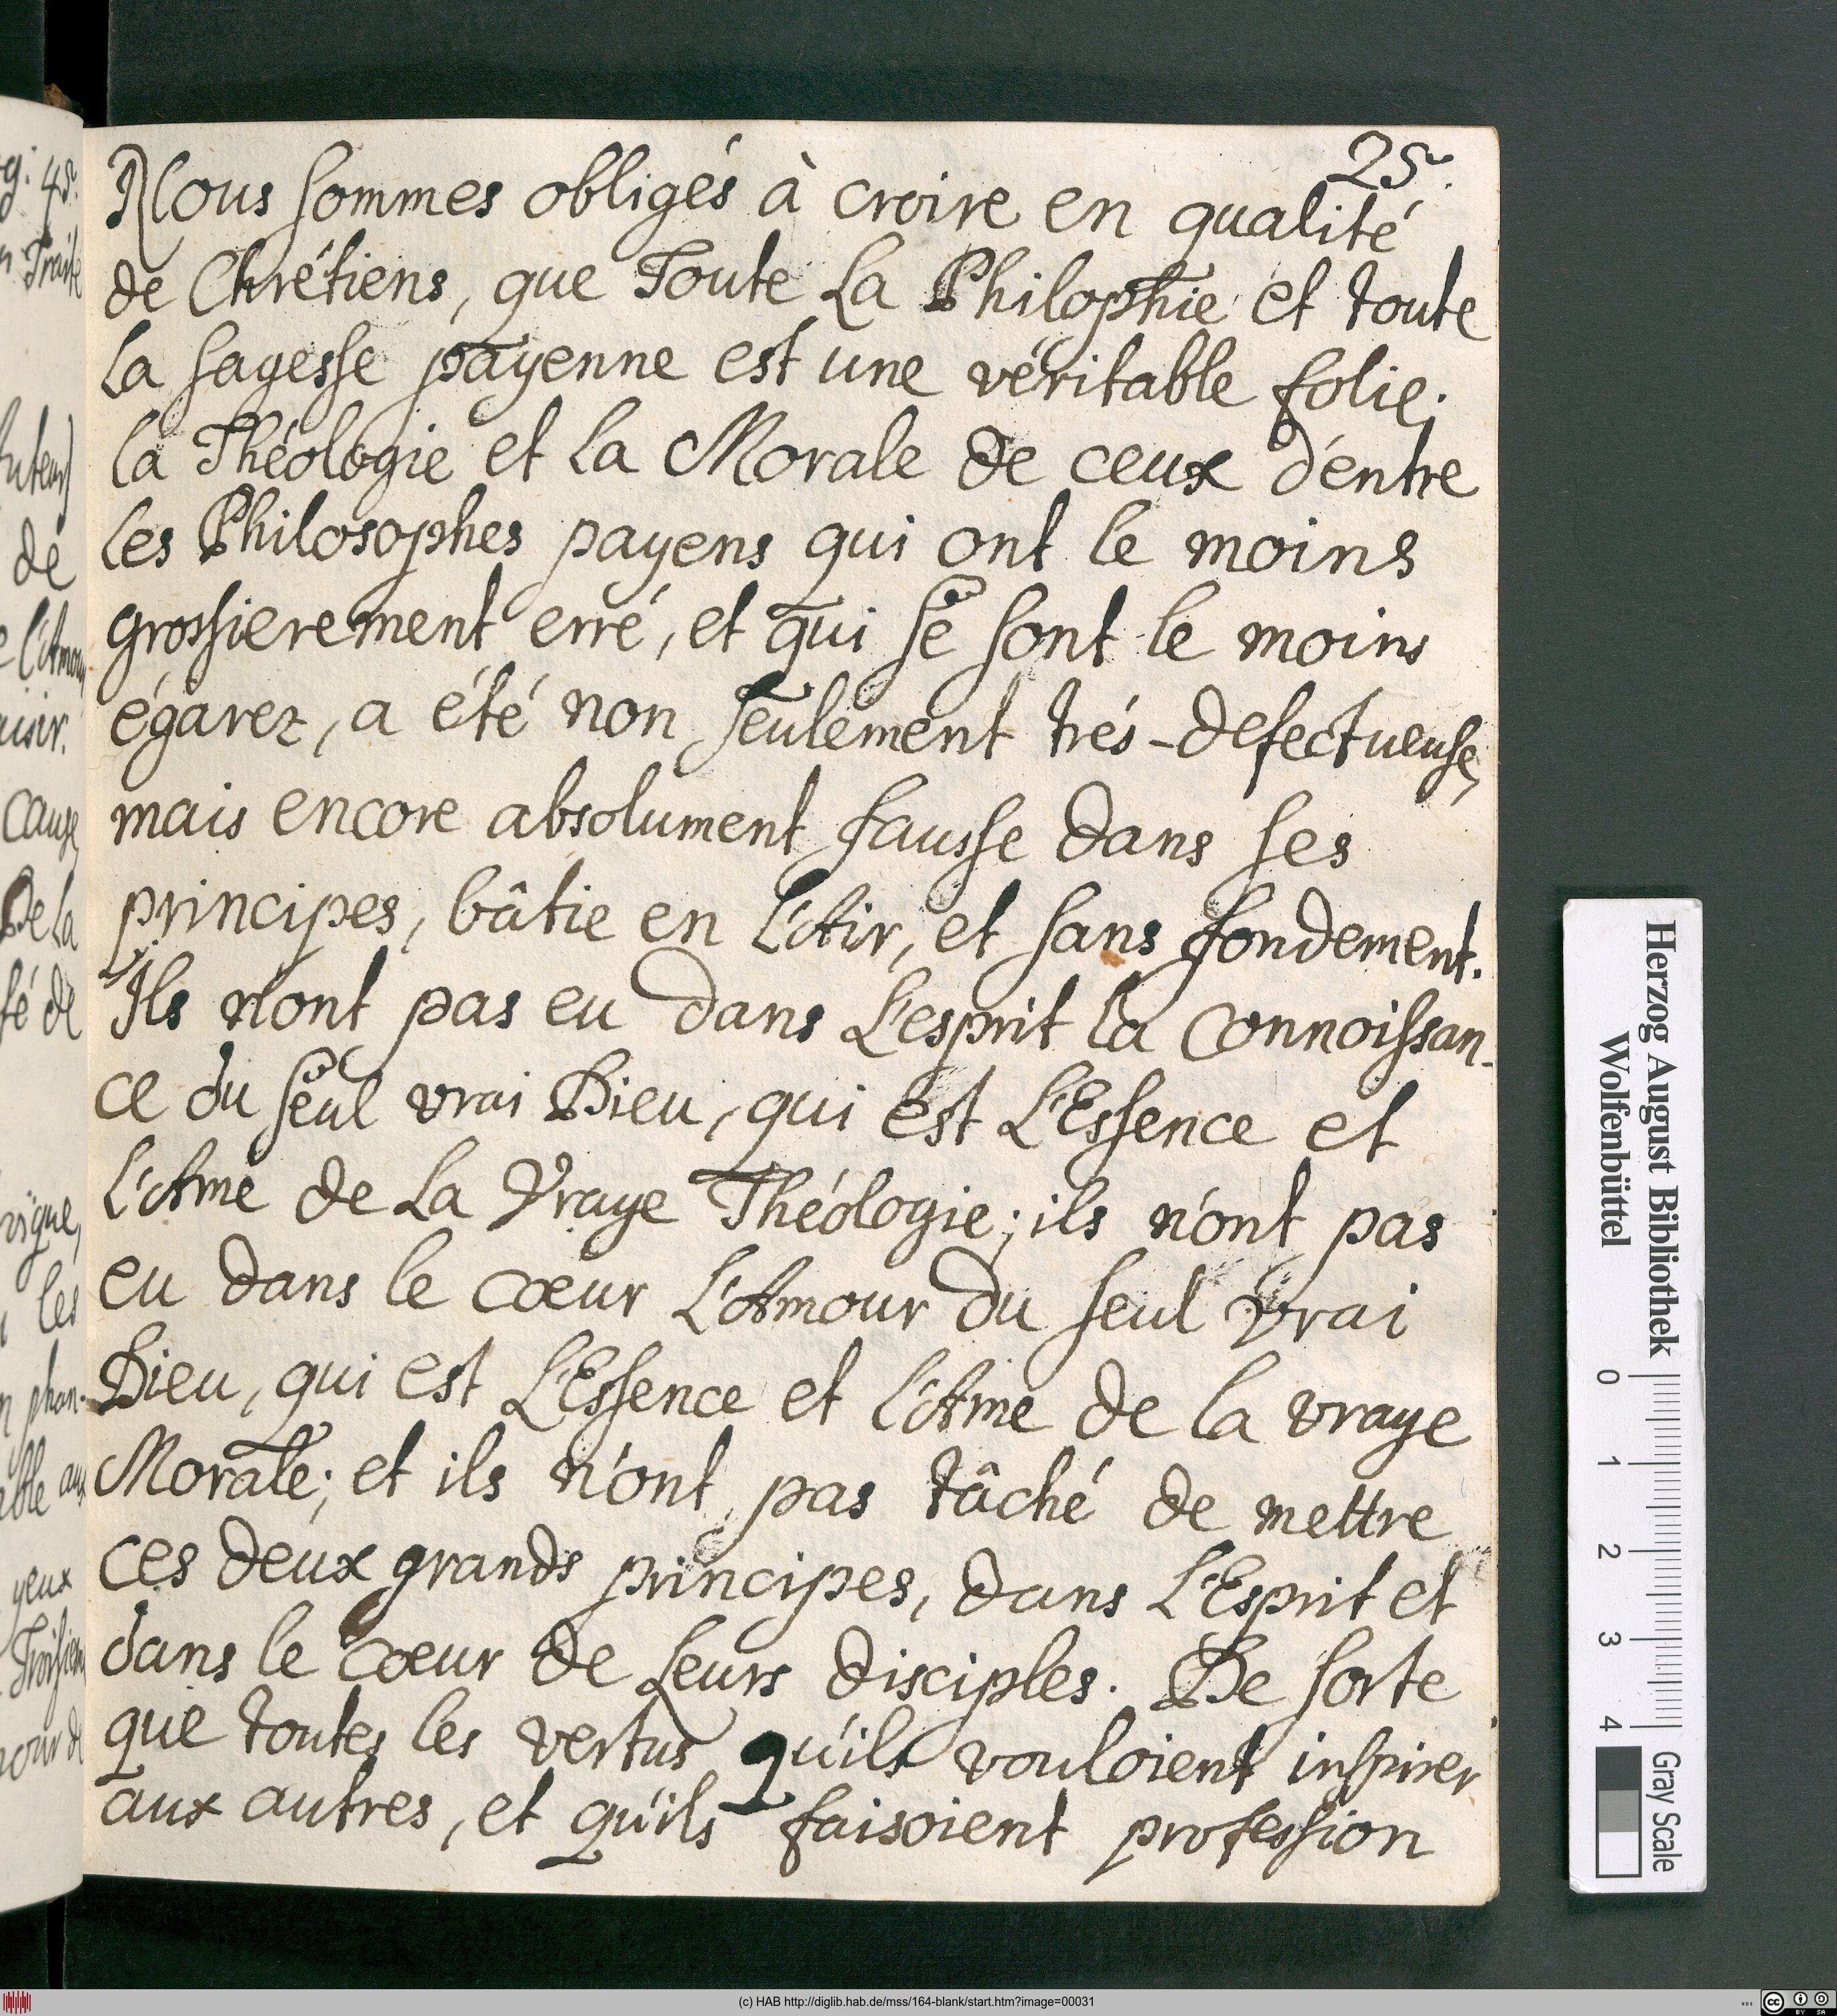 25.
Nous sommes obligés à croire en qualité
de Chrétiens, que Toute La Philophie et toute
La sagesse payenne est une véritable folie;
la Théologie et La Morale de ceux d'entre
Les Philosophes payens qui ont le moins
grossierement erré, et qui se sont le moins
égarez, a été non seulement trés-defectueuse,
mais encore absolument fausse dans ses
principes, bâtie en L'Air, et sans fondement.
Ils n'ont pas eu dans L'esprit la Connoissan-
ce du seul vrai Dieu, qui est L'Essence et
L'Ame de La Vraye Théologie; ils n'ont pas
eu dans le cœur L'Amour du seul Vrai
Dieu, qui est L'Essence et L'Ame de la vraye
Morale; et ils n'ont pas tâché de mettre
ces deux grands principes, dans L'Esprit et
dans le cœur de Leurs disciples. De sorte
que toutes les vertus qu'ils vouloient inspirer
aux autres, et qu'ils faisoient profession
de
les
yeux
Herzog August Bibliothek
Wolfenbüttel
0 1 2 3 4
Gray Scale
(c) HAB http://diglib.hab.de/mss/164-blank/start.htm?image=00031